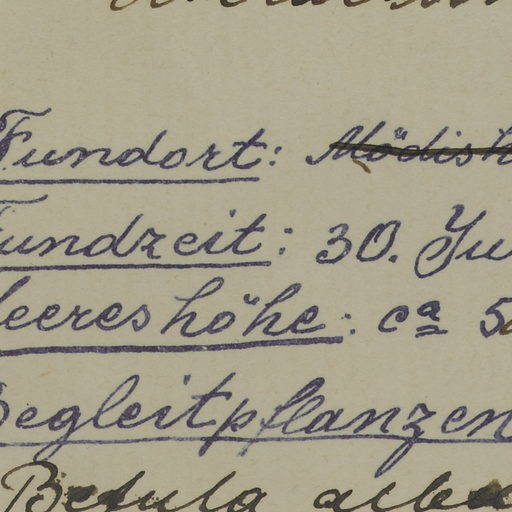 Fundort: Mödish
Fundzeit: 30. Ju
Meereshöhe: ca 5
Begleitpflanzen
Betula alba